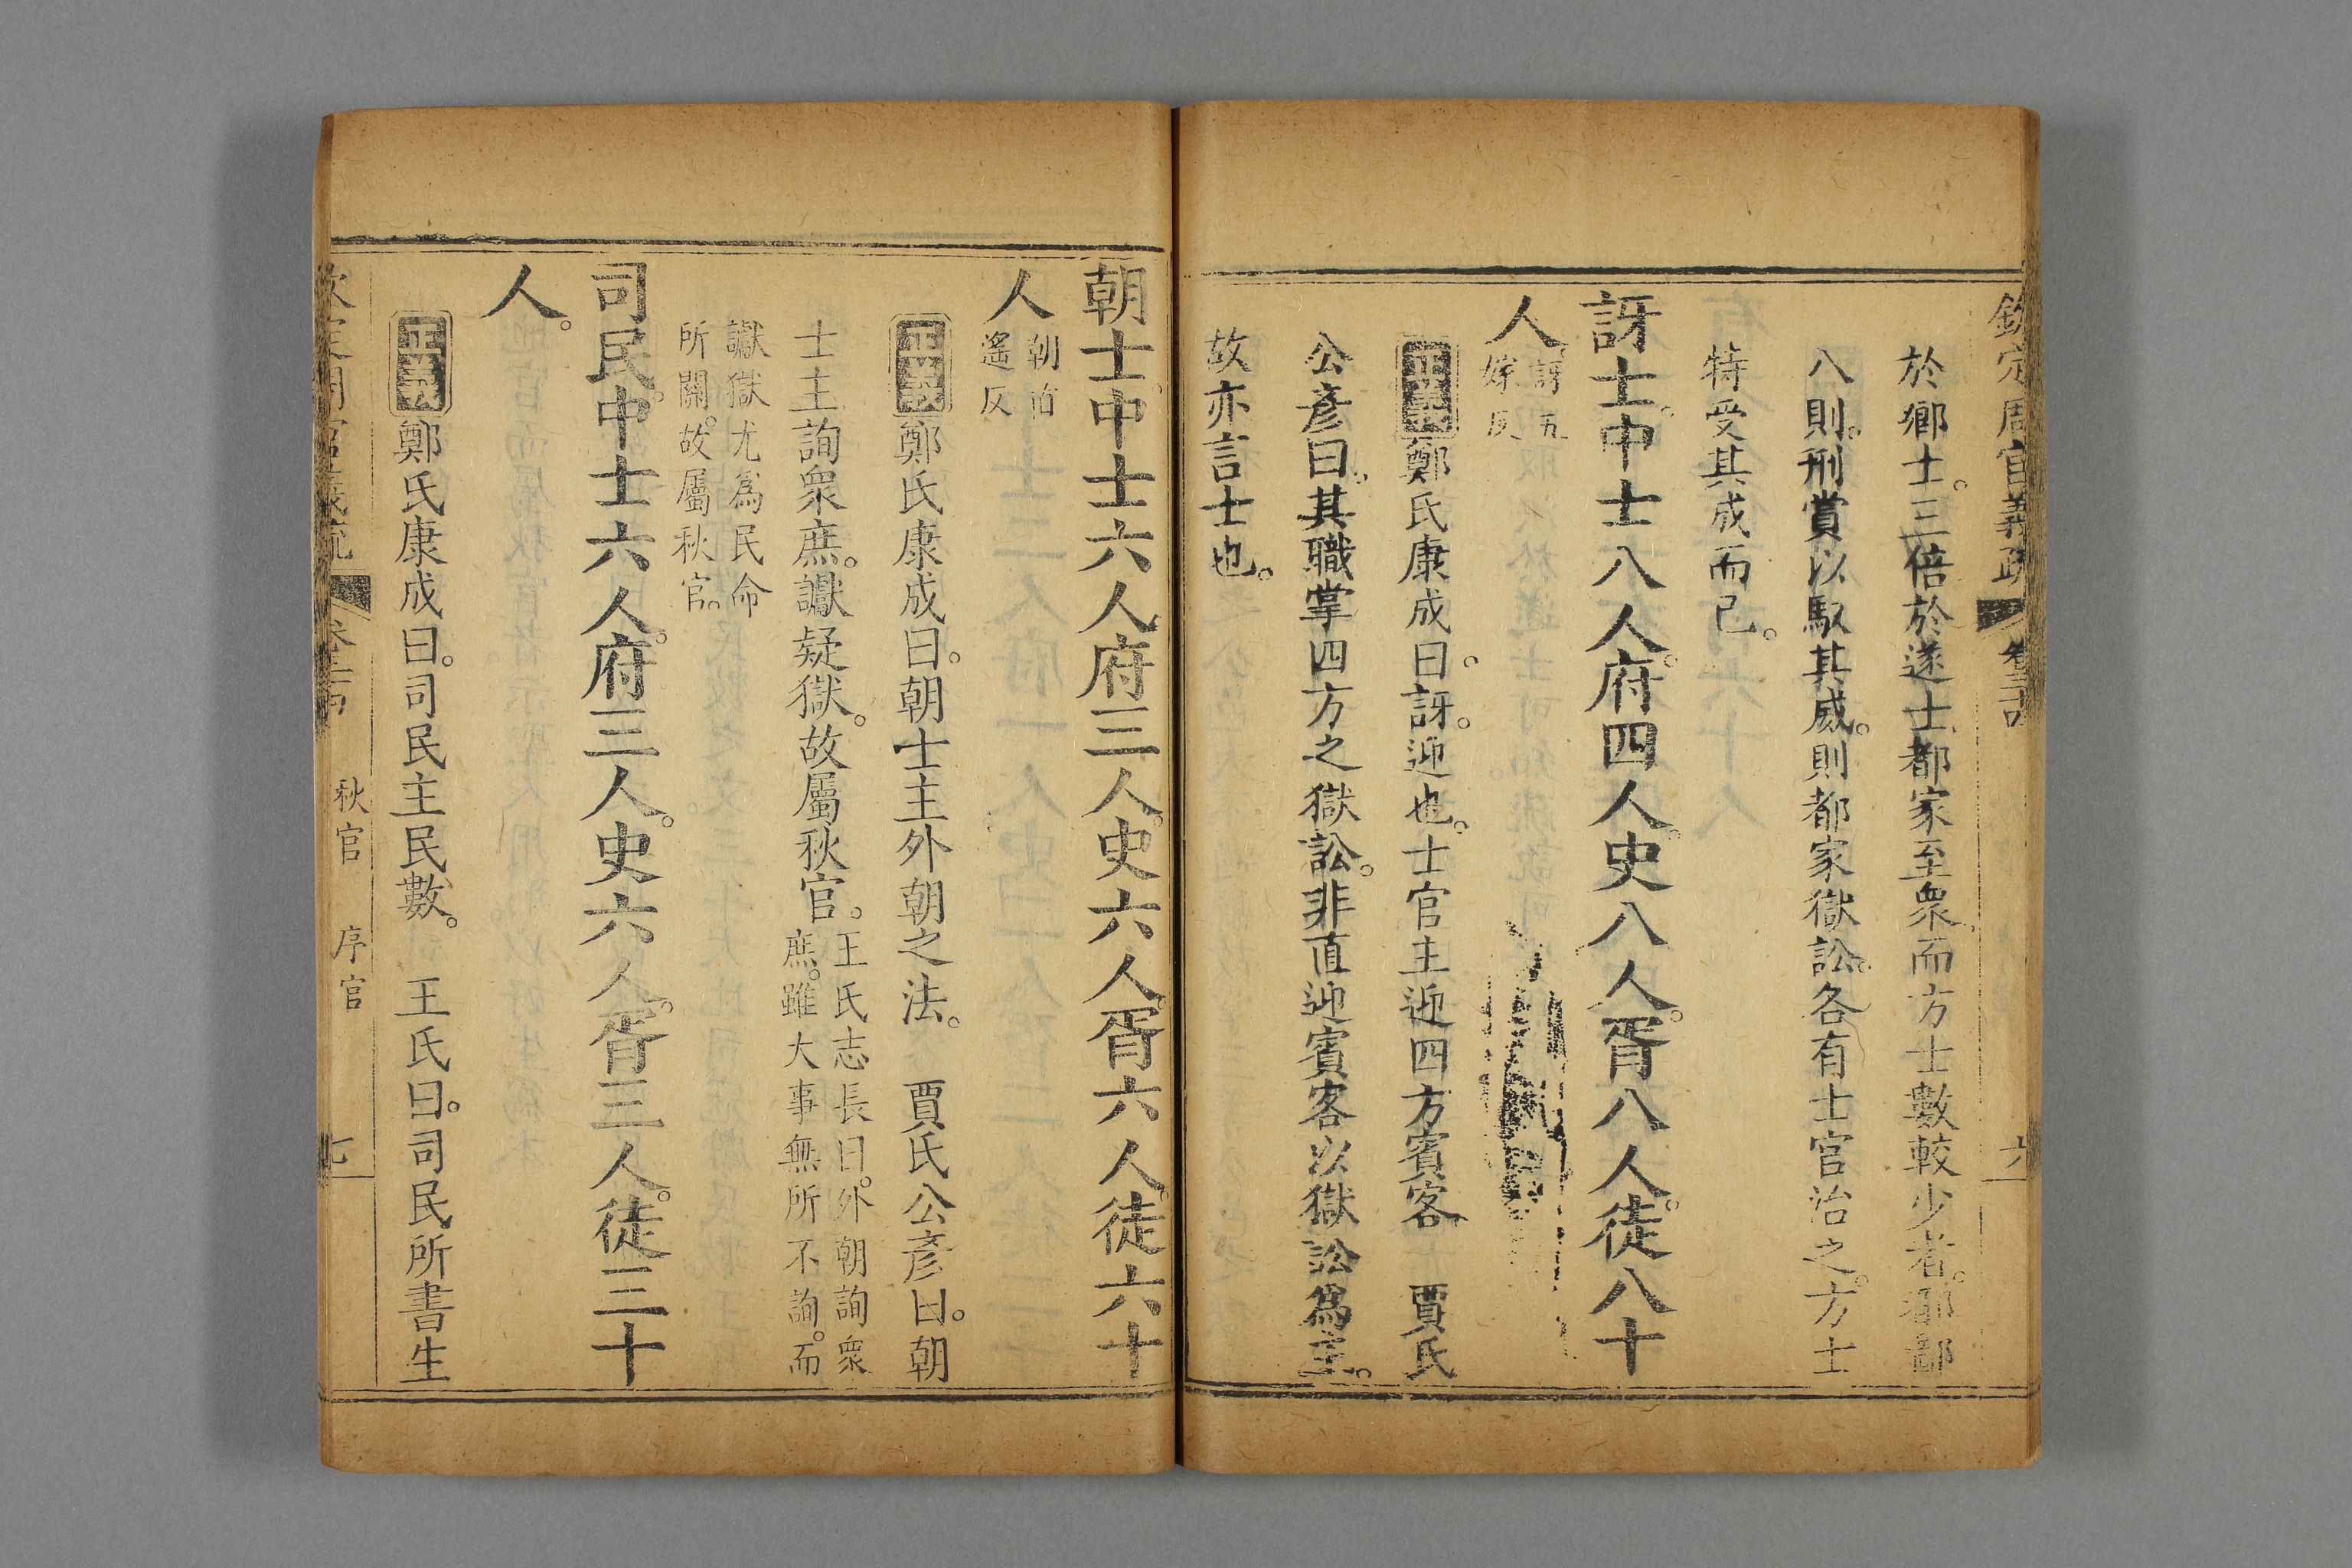 欽定周官義疏 卷三十四 六
於鄉士。三倍於遂士。都家至衆。而方士數較少者。都鄙
八則。刑賞以馭其威。則都家獄訟。各有士官治之。方士
特受其成而已。
訝士。中士八人。府四人。史八人。胥八人。徒八十
人。訝五
嫁反
正義鄭氏康成曰。訝。迎也。士官主迎四方賓客 賈氏
公彥曰。其職掌四方之獄訟。非直迎賓客。以獄訟爲主。
故亦言士也。
朝士。中士六人。府三人。史六人。胥六人。徒六十
人朝直
遙反
正義鄭氏康成曰。朝士主外朝之法。 賈氏公彥曰。朝
士主詢衆庶。讞疑獄。故屬秋官。王氏志長曰。外朝詢衆
庶。雖大事無所不詢。而
讞獄尤爲民命
所關。故屬秋官。
司民。中士六人。府三人。史六人。胥三人。徒三十
人。
正義鄭氏康成曰。司民主民數。 王氏曰。司民所書生
欽定周官義疏 卷三十四 秋官 序官 七